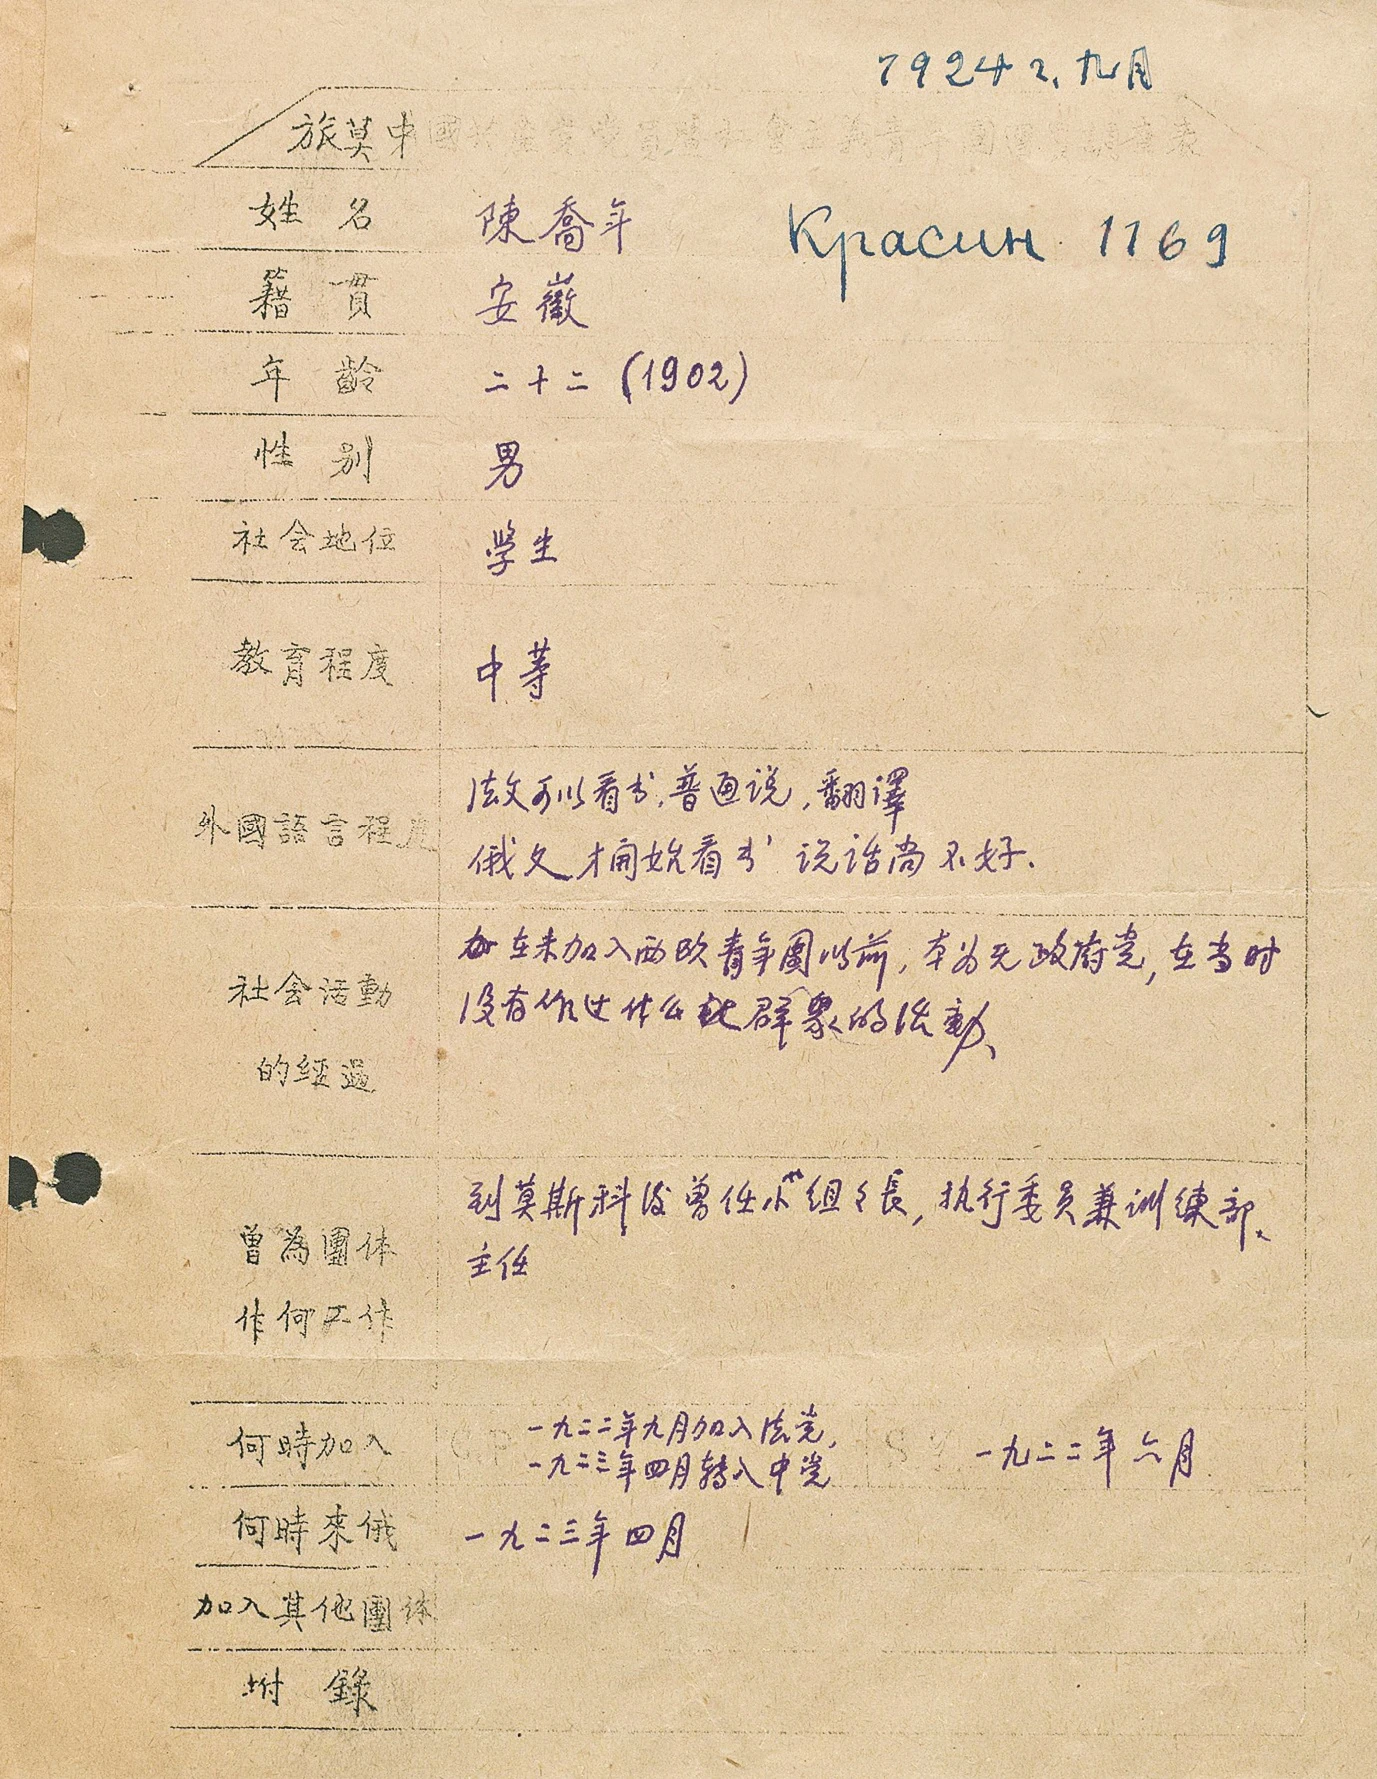 1924 г.九月
旅莫中國共產黨黨員
姓名 陳喬年 Красин 1169
籍貫 安徽
年齡 二十二 (1902)
性别 男
社会地位 学生
教育程度 中等
外國語言程度 法文可以看书,普通说,翻譯
俄文才開始看书 说话尚不好.
社会活動 在未加入西欧青年團以前,本为无政府党,在当时
没有作过什么 群眾的活動、
的經過
曾為團体 到莫斯科後曾任小組々長,执行委員兼训練部、
主任
作何工作
何時加入 C P 一九二二年九月加入法党, S Y 一九二二年六月
一九二三年四月转入中党
何時來俄 一九二三年四月
加入其他團体
坿錄